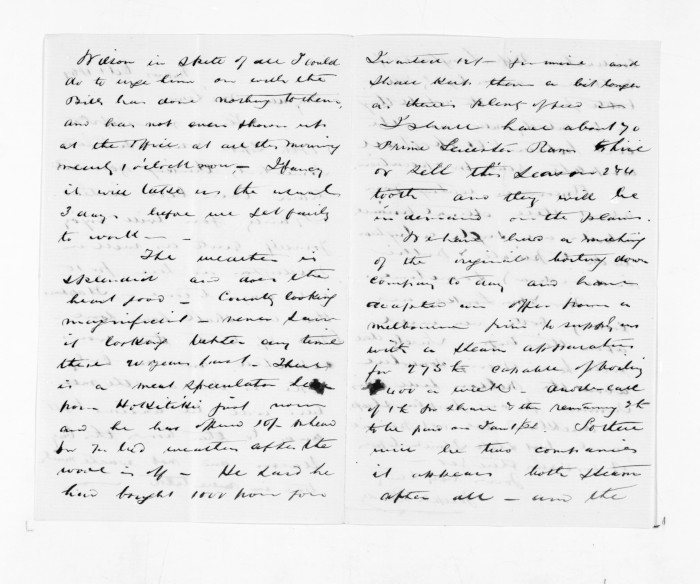 Wilson in spite of all I could
do to urge him on with the
Bills has done nothing to them,
and has not even shown up
at the office at all this morning
nearly 1 o'clock now, - I fancy
it will take us the usual
3 days before we get fairly
to work -
The weather is
splendid and does the
heart good - Country looking
magnificent - never saw
it looking better any time
these 20 years past - There
is a meat speculator here
from Hokitika just now
and he has offered 10/- ahead
for wethers after the
wool is off - He said he
had bought 1000 from
I wanted 12/- for mine and
shall keep them a bit longer
as there's plenty of feed
I shall have about 70
Prime Leicester Rams to hire
or sell this Season 2 & 4
tooth and they will be
in demand on the plains.
We have had a meeting
of the original boiling down
company to day and have
accepted an offer from a
Melbourne firm to supply us
with a steam apparatus
for 275 £ capable of boiling
400 a week - another call
of 1 £ per share & the remaining
to be paid on Jan 1st So there
will be two companies
it appears both steam
after all - and the